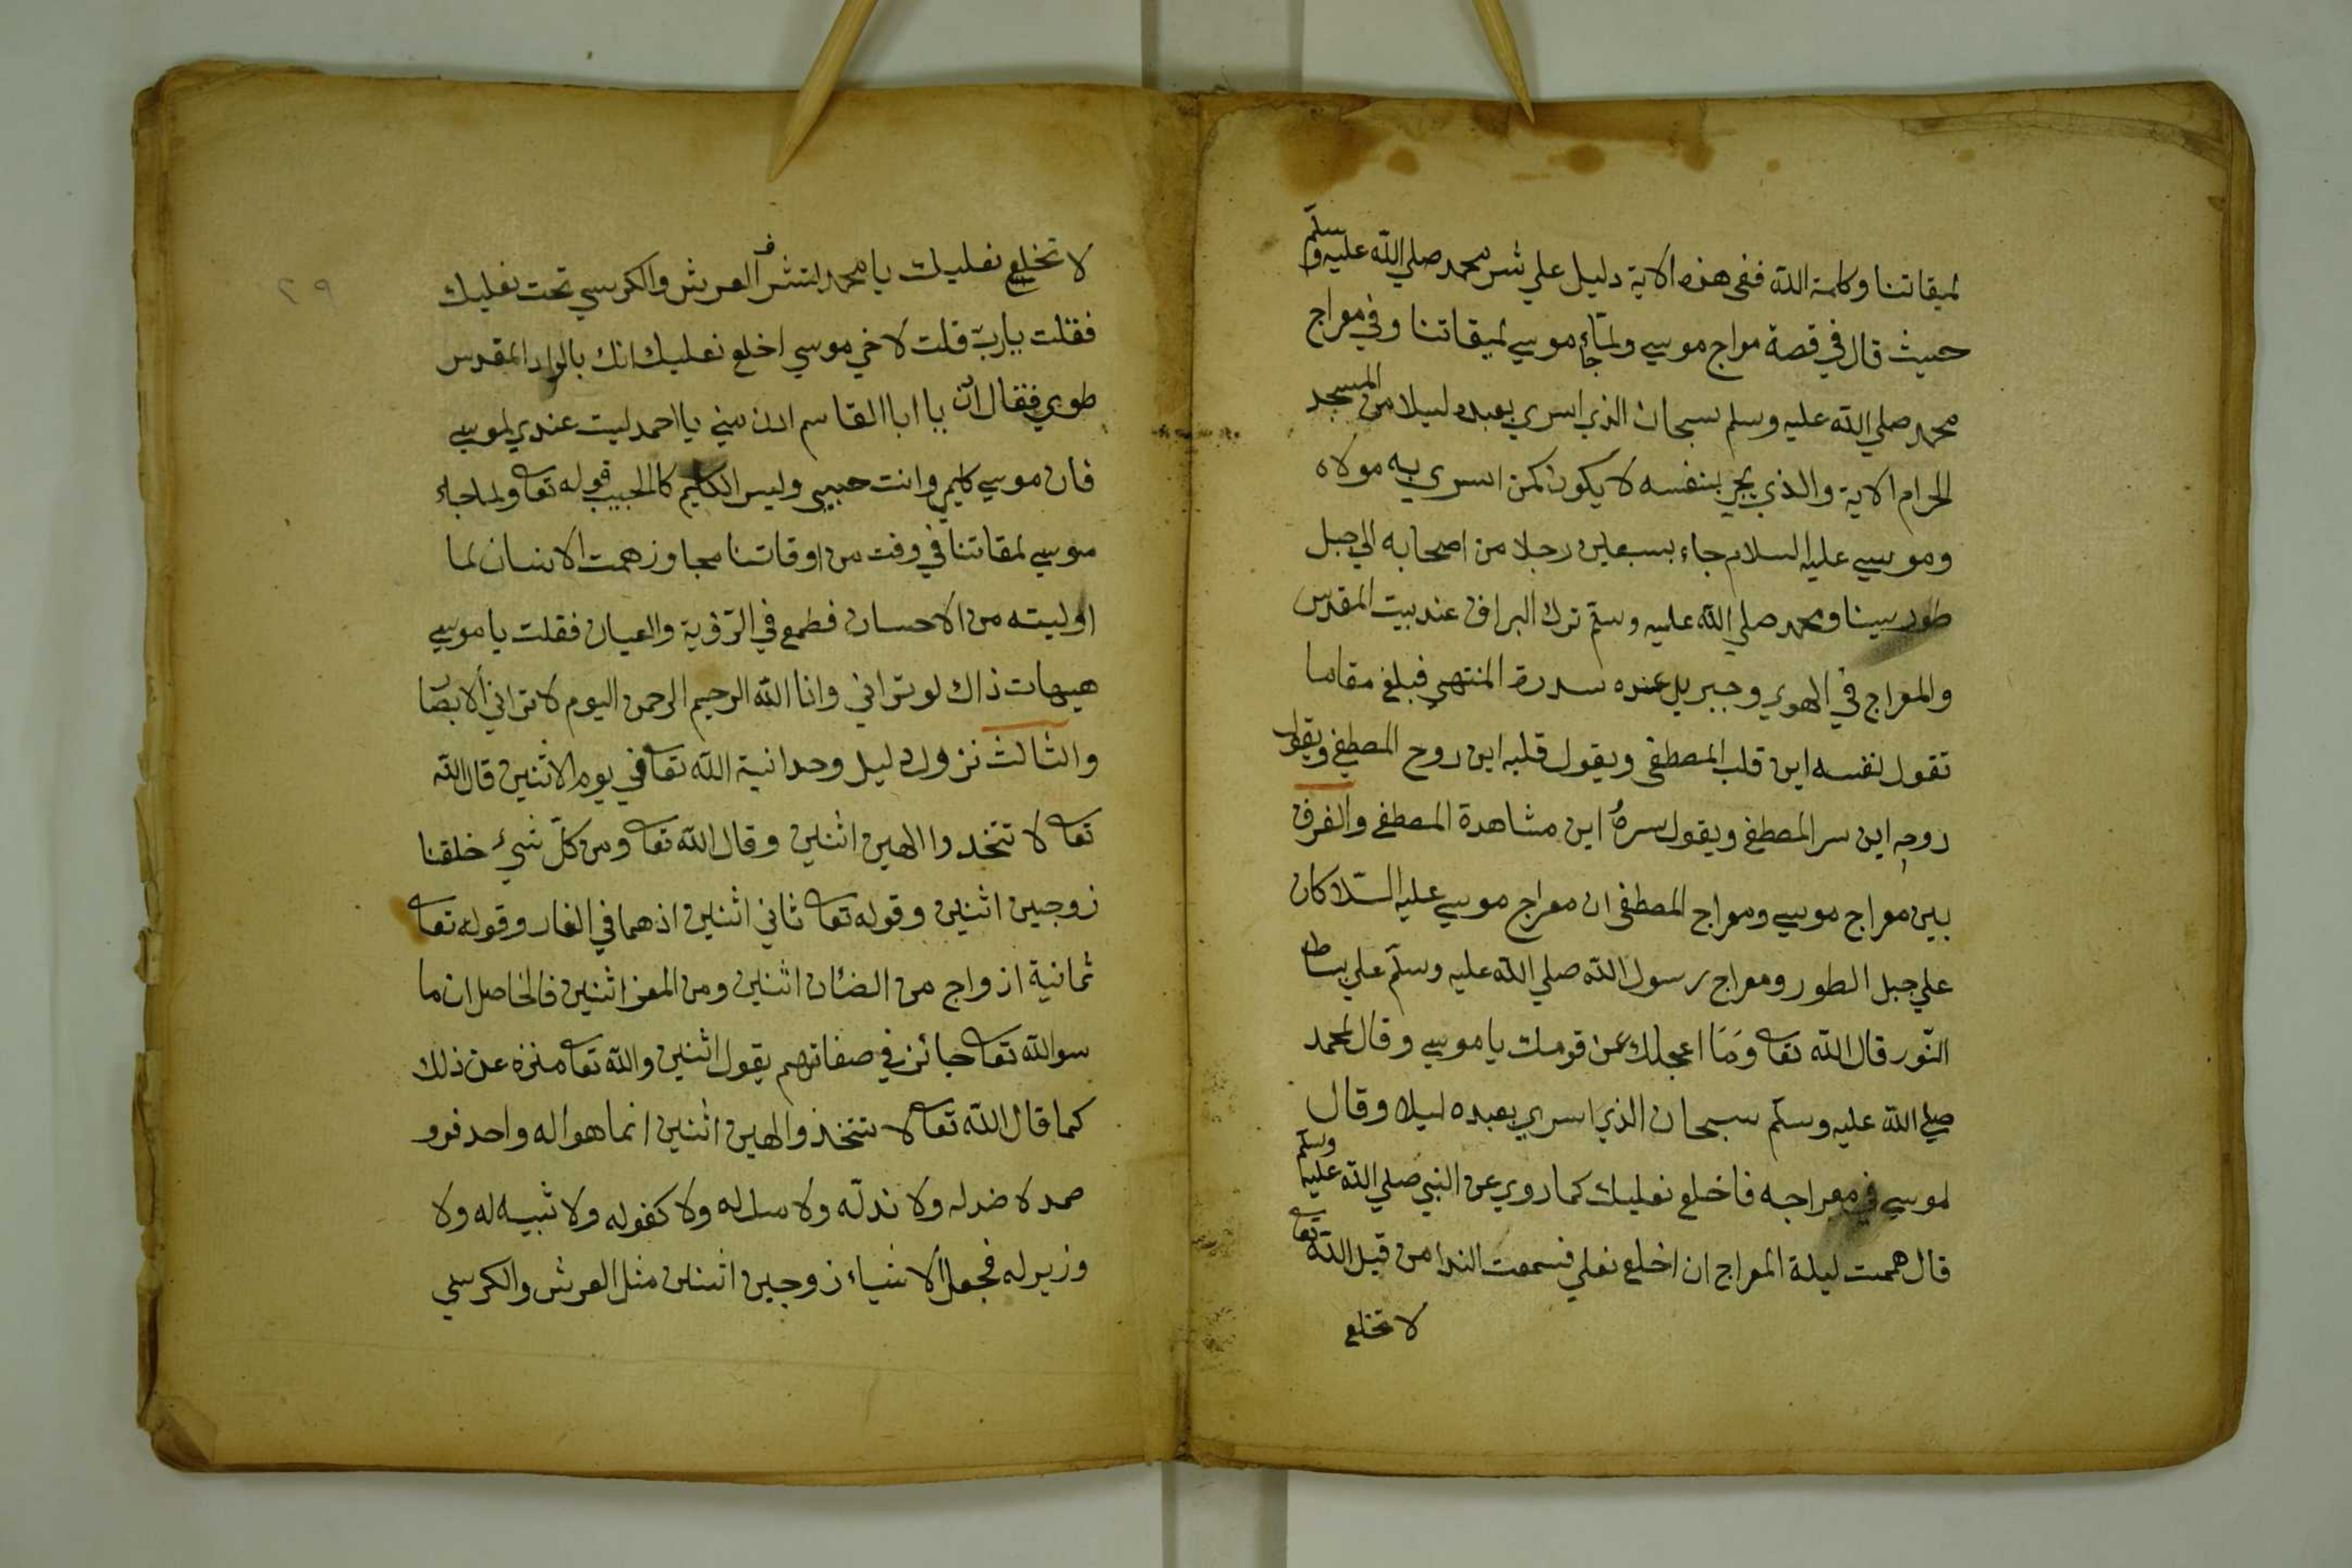 لميقاتنا وكلمة الله ففى هذه الاية دليل علي شر محمد صلي الله عليه وسلم
حيث قال في قصة مواج موسي ولما جاء موسي لميقاتنا وفي معراج
محمد صلي الله عليه وسلم سبحان الذي اسري بعبده ليلا من المسجد
الحرام الاية والذي يجئ بنفسه لا يكون كمن اسري به مولاه
وموسي عليه السلام جاء بسبعين رجلا من اصحابه الي جبل
طور سينا ومحمد صلي الله عليه وسلم ترك البراق عند بيت المقدس
والمعراج في الهوي وجبريل عنده سدرة المنتهي فبلغ مقاما
تقول نفسه اين قلب المصطفي ويقول قلبه اين روح المصطفي ويقول
روحه اين سر المصطفي ويقول سره اين مشاهدة المصطفي والفرق
بين معراج موسي ومعراج المصطفي ان معراج موسي عليه السلا كان
علي جبل الطور ومعراج رسول الله صلي الله عليه وسلم علي بساط
النور قال الله تعا وما اعجلك عن قومك يا موسي وقال لمحمد
صلي الله عليه وسلم سبحان الذي اسري بعبده ليلا وقال
لموسي في معراجه فاخلع نعليك كما روي عن النبي صلي الله عليه وسلم
قال هممت ليلة المعراج ان اخلع نعلي فسمعت الندا من قبل الله تعا
لا تخلع
٢٩
لا تخلع نعليك يا محمد لتشرف العرش والكرسي تحت نعليك
فقلت يارب قلت لاخي موسي اخلع نعليك انك بالواد المقدس
طوي فقال ادن يا ابا القاسم ادن مني يا احمد ليت عندي لموسي
فان موسي كليمي وانت حبيبي وليس الكليم كالحبيب قوله تعا ولما جاء
موسي لمقاتنا في وقت من اوقاتنا مجاوز همت الانسان لما
اوليته من الاحسان فطمع في الرؤية والعيان فقلت يا موسي
هيهات ذاك لو تراني وانا الله الرحيم الرحمن اليوم لا تراني الابصا
والثالث نزول دليل وحدانية الله تعا في يوم الاثنين قال الله
تعا لا تتخدوا الهين اثنين وقال الله تعا ومن كل شيء خلقنا
زوجين اثنين وقوله تعا ثاني اثنين اذهما في الغار وقوله تعا
ثمانية ازواج من الضأن اثنين ومن المعز اثنين فالحاصل ان ما
سوالله تعا جائز في صفاتهم يقول اثنين والله تعا منزه عن ذلك
كما قال الله تعا لا تتخذوا الهين اثنين انما هو اله واحد فرد
صمد لا ضد له ولا ند له ولا مثل له ولا كفو له ولا شبيه له ولا
وزير له فجعل الاشياء زوجين اثنين مثل العرش والكرسي